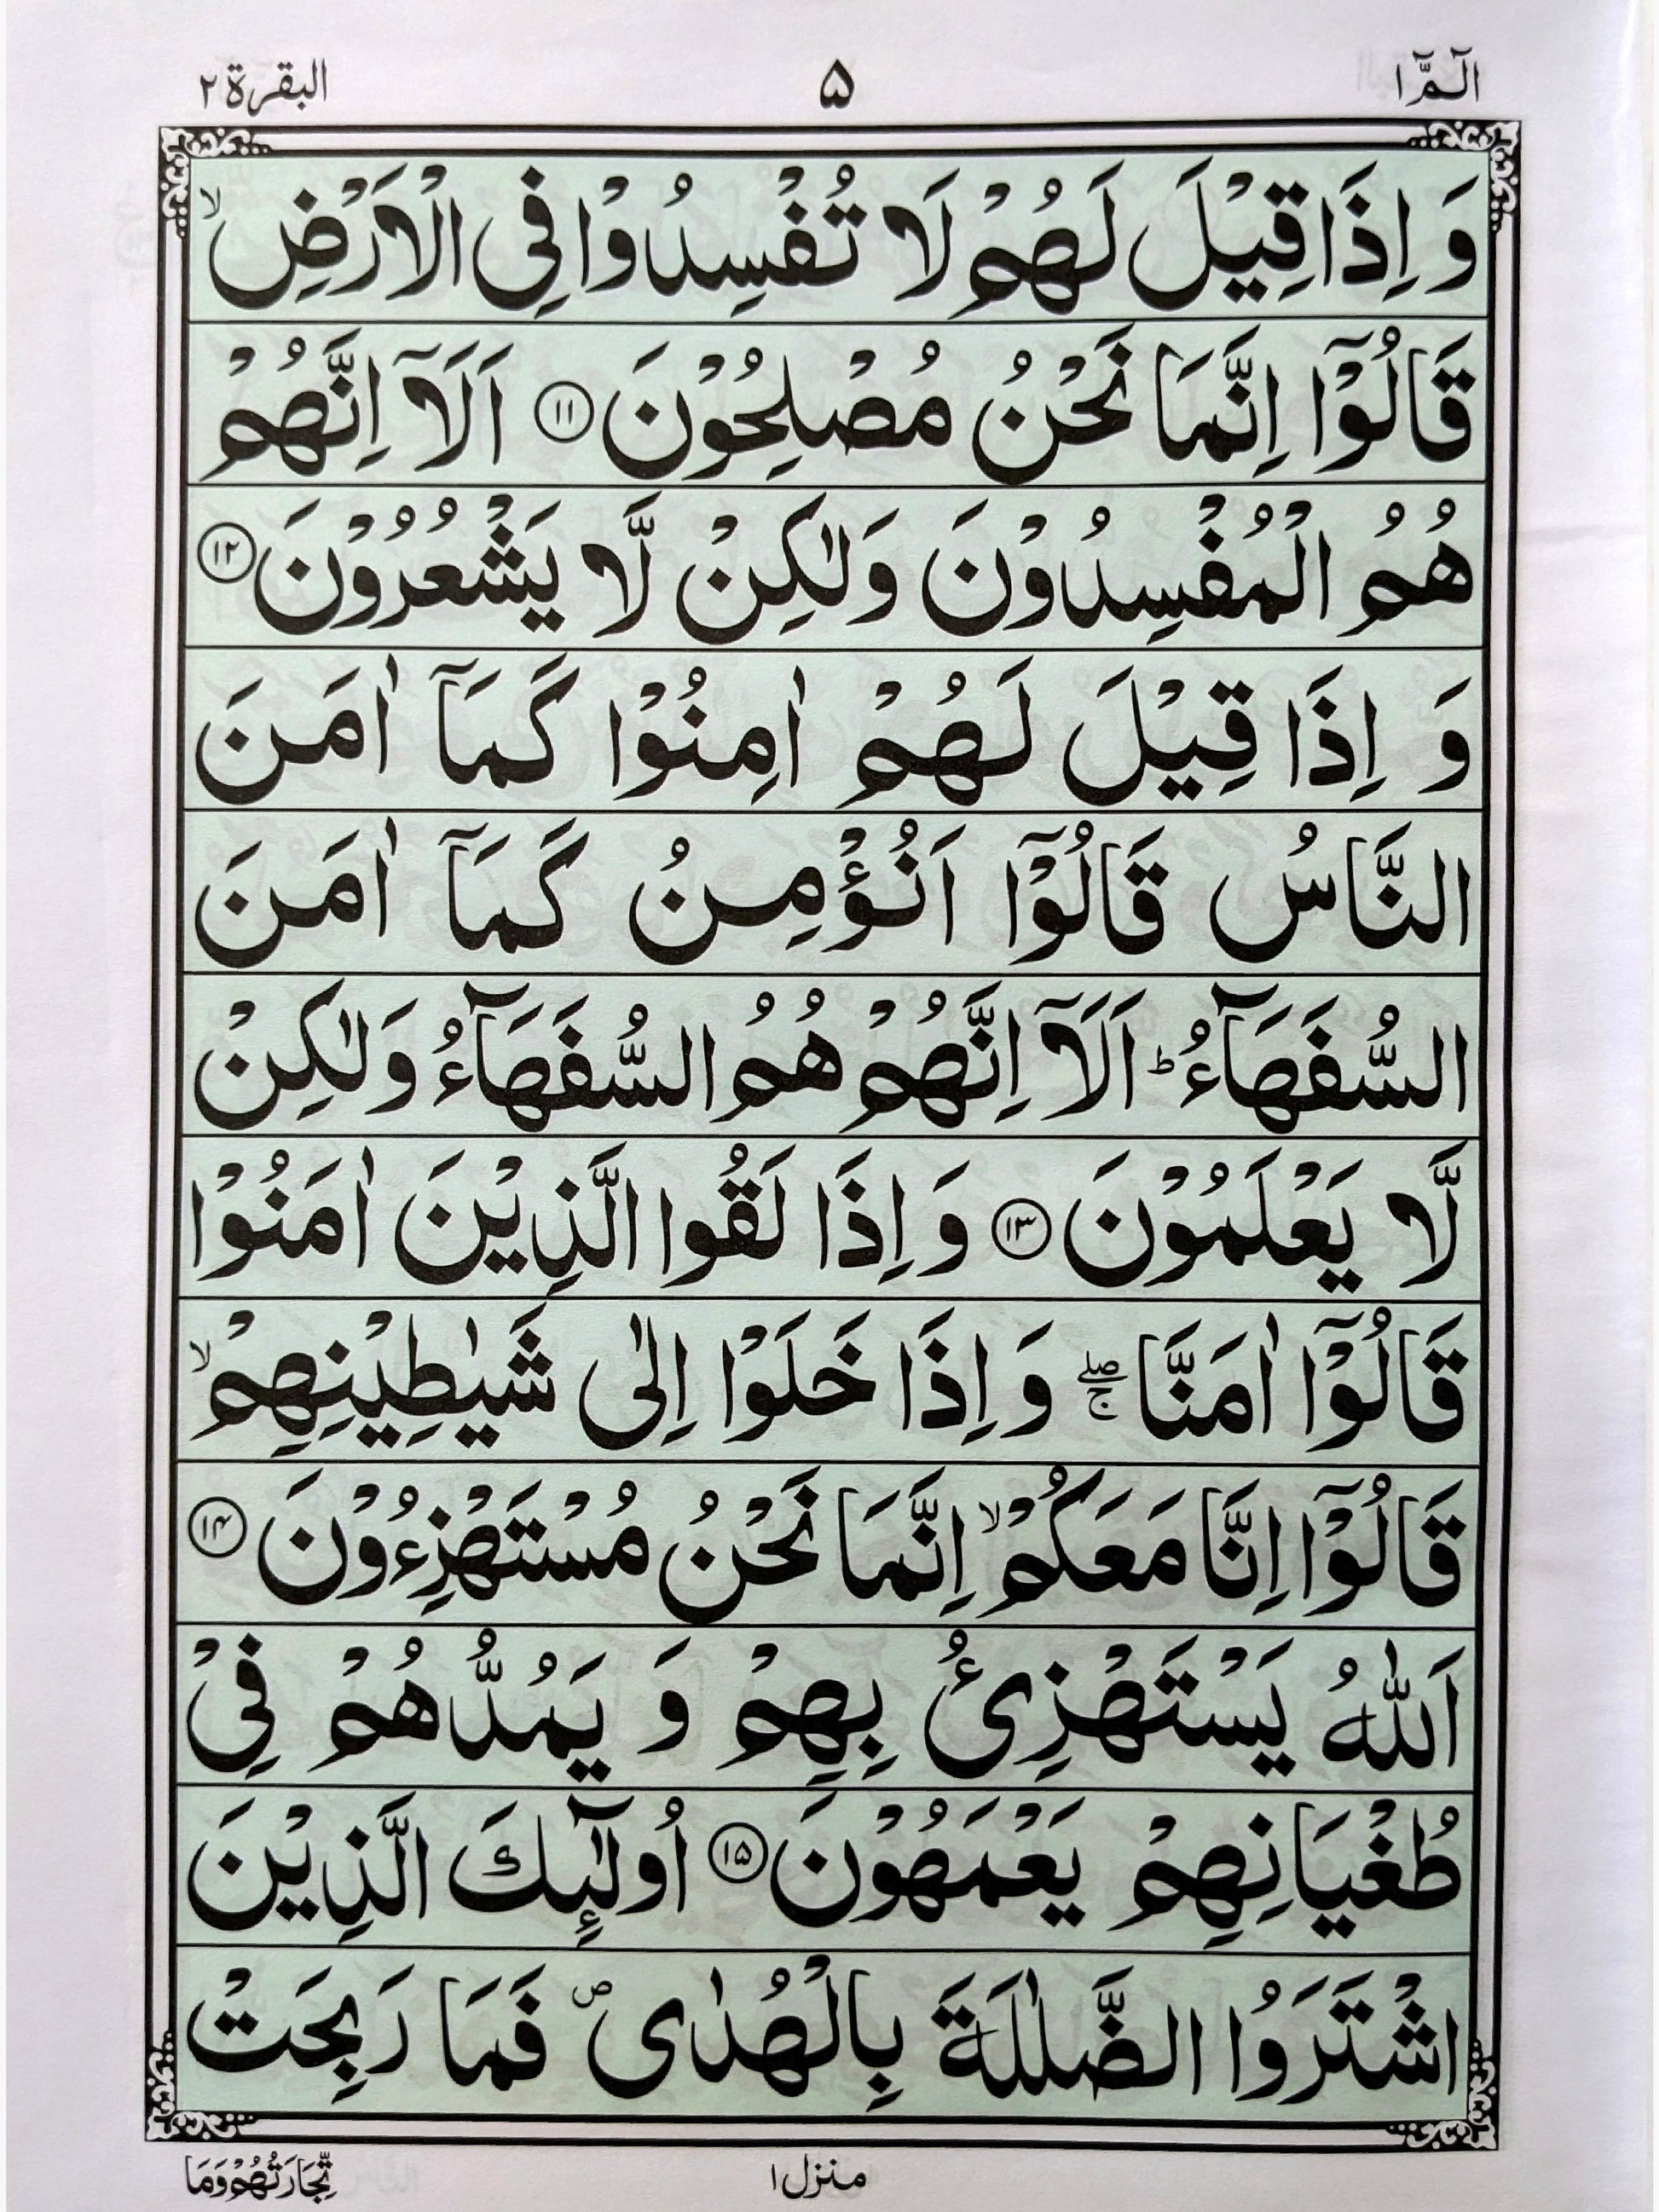 الٓمّٓ ۱ ۵ البقرة ۲
وَ اِذَا قِیْلَ لَهُمْ لَا تُفْسِدُوْا فِی الْاَرْضِ ۙ
قَالُوْۤا اِنَّمَا نَحْنُ مُصْلِحُوْنَ ۝۱۱ اَلَاۤ اِنَّهُمْ
هُمُ الْمُفْسِدُوْنَ وَلٰكِنْ لَّا یَشْعُرُوْنَ ۝۱۲
وَ اِذَا قِیْلَ لَهُمْ اٰمِنُوْا كَمَاۤ اٰمَنَ
النَّاسُ قَالُوْۤا اَنُؤْمِنُ كَمَاۤ اٰمَنَ
السُّفَهَآءُ ؕ اَلَاۤ اِنَّهُمْ هُمُ السُّفَهَآءُ وَلٰكِنْ
لَّا یَعْلَمُوْنَ ۝۱۳ وَ اِذَا لَقُوا الَّذِیْنَ اٰمَنُوْا
قَالُوْۤا اٰمَنَّا ۖۚ وَ اِذَا خَلَوْا اِلٰى شَیٰطِیْنِهِمْ ۙ
قَالُوْۤا اِنَّا مَعَكُمْ ۙ اِنَّمَا نَحْنُ مُسْتَهْزِءُوْنَ ۝۱۴
اَللّٰهُ یَسْتَهْزِئُ بِهِمْ وَ یَمُدُّهُمْ فِیْ
طُغْیَانِهِمْ یَعْمَهُوْنَ ۝۱۵ اُولٰٓىِٕكَ الَّذِیْنَ
اشْتَرَوُا الضَّلٰلَةَ بِالْهُدٰى ۪ فَمَا رَبِحَتْ
منزل ۱ تِّجَارَتُهُمْ وَمَا